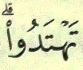 تَهۡتَدُواْۗ